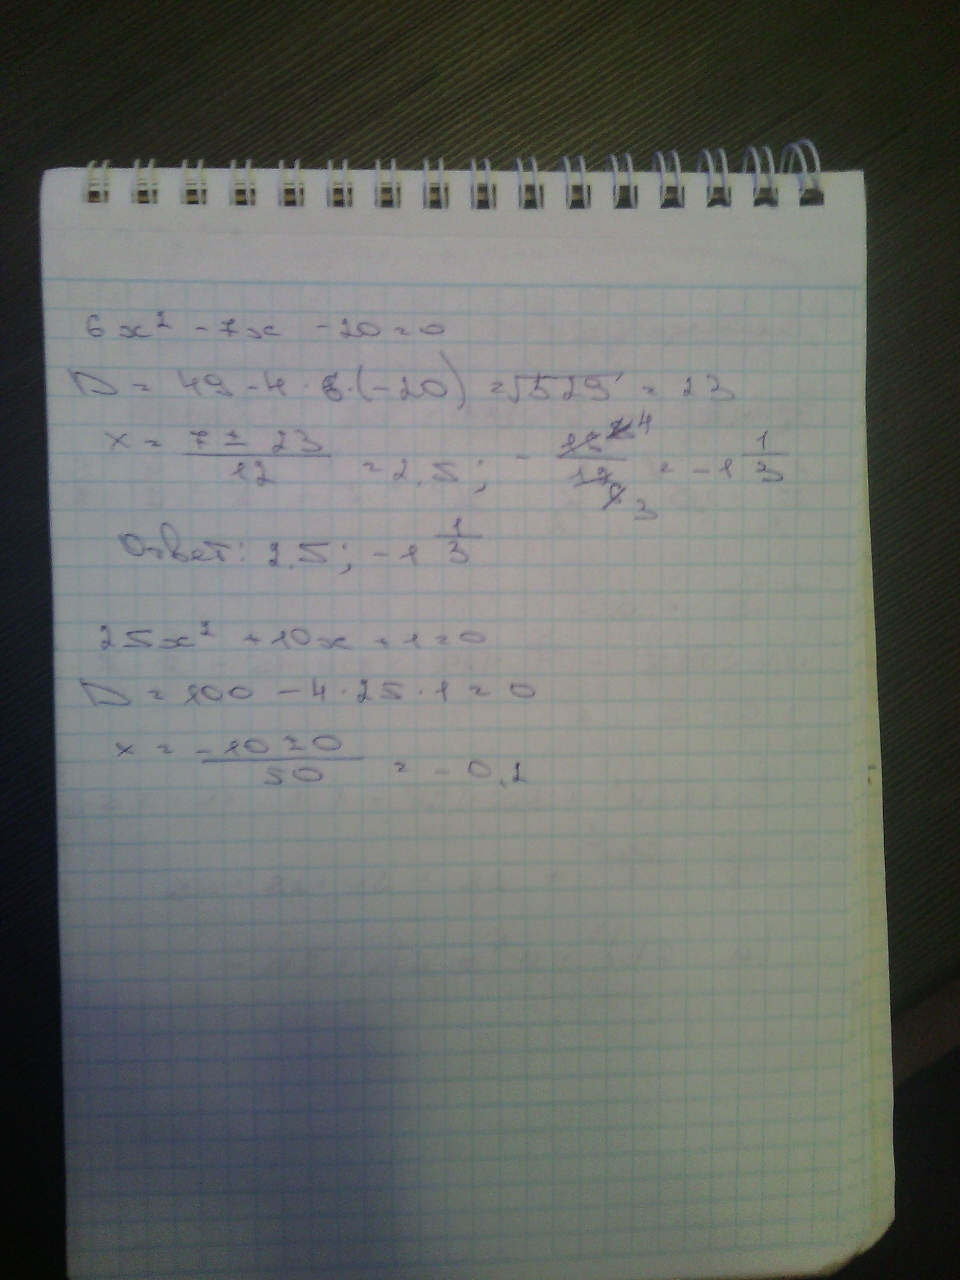 6x² - 7x - 20 = 0
D = 49 - 4 · 6 · (-20) = √529 = 23
x = (7 ± 23)/12 = 2,5 ; - 16/12 4/3 = -1 1/3
Ответ: 2,5 ; -1 1/3
25x² + 10x + 1 = 0
D = 100 - 4 · 25 · 1 = 0
x = (-10 ± 0)/50 = -0,2